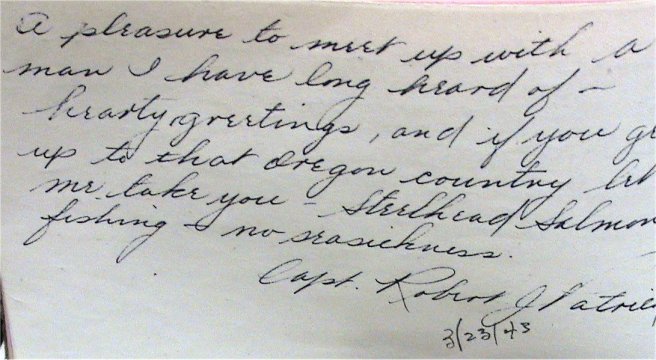 A pleasure to meet up with a
man I have long heard of –
hearty greetings, and if you ge
up to that Oregon country let
me take you – Steelhead Salmon
fishing – no seasickness.
Capt. Robert J Patric
3/23/43